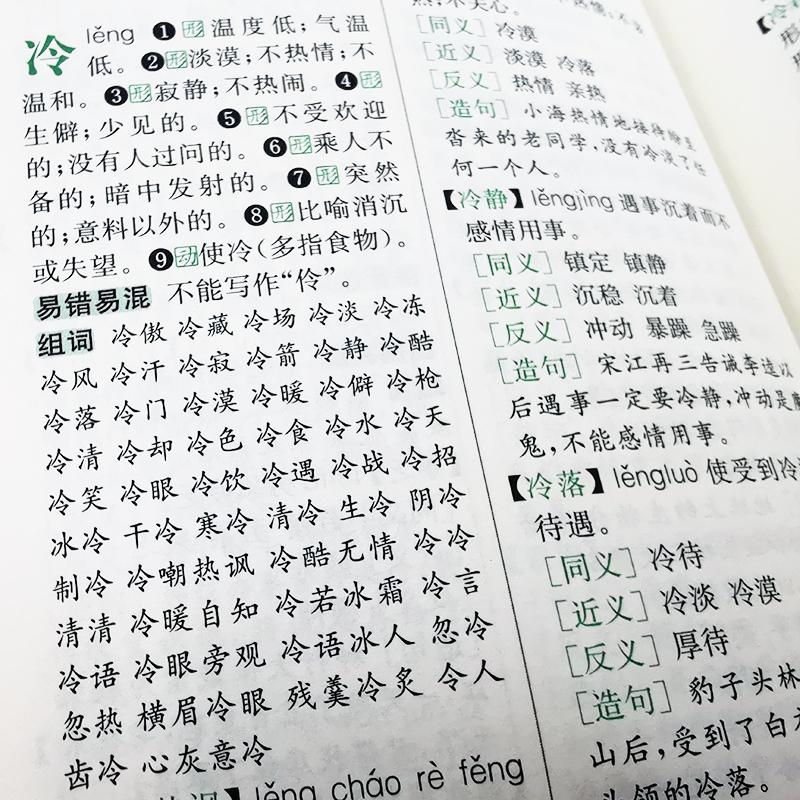 冷 lěng ❶形温度低；气温
低。❷形淡漠；不热情；不
温和。❸形寂静；不热闹。❹形
生僻；少见的。❺形不受欢迎
的；没有人过问的。❻形乘人不
备的；暗中发射的。❼形突然
的；意料以外的。❽形比喻消沉
或失望。❾动使冷（多指食物）。
易错易混 不能写作“伶”。
组词 冷傲 冷藏 冷场 冷淡 冷冻
冷风 冷汗 冷寂 冷箭 冷静 冷酷
冷落 冷门 冷漠 冷暖 冷僻 冷枪
冷清 冷却 冷色 冷食 冷水 冷天
冷笑 冷眼 冷饮 冷遇 冷战 冷招
冰冷 干冷 寒冷 清冷 生冷 阴冷
制冷 冷嘲热讽 冷酷无情 冷冷
清清 冷暖自知 冷若冰霜 冷言
冷语 冷眼旁观 冷语冰人 忽冷
忽热 横眉冷眼 残羹冷炙 令人
齿冷 心灰意冷
】lěng cháo rè fěng
热；不关心。
［同义］冷漠
［近义］淡漠 冷落
［反义］热情 亲热
［造句］小海热情地接待
沓来的老同学，没有冷淡了任
何一个人。
【冷静】lěngjìng 遇事沉着而不
感情用事。
［同义］镇定 镇静
［近义］沉稳 沉着
［反义］冲动 暴躁 急躁
［造句］宋江再三告诫李逵以
后遇事一定要冷静，冲动是魔
鬼，不能感情用事。
【冷落】lěngluò 使受到冷
待遇。
［同义］冷待
［近义］冷淡 冷漠
［反义］厚待
［造句］豹子头林
山后，受到了白
头领的冷落。